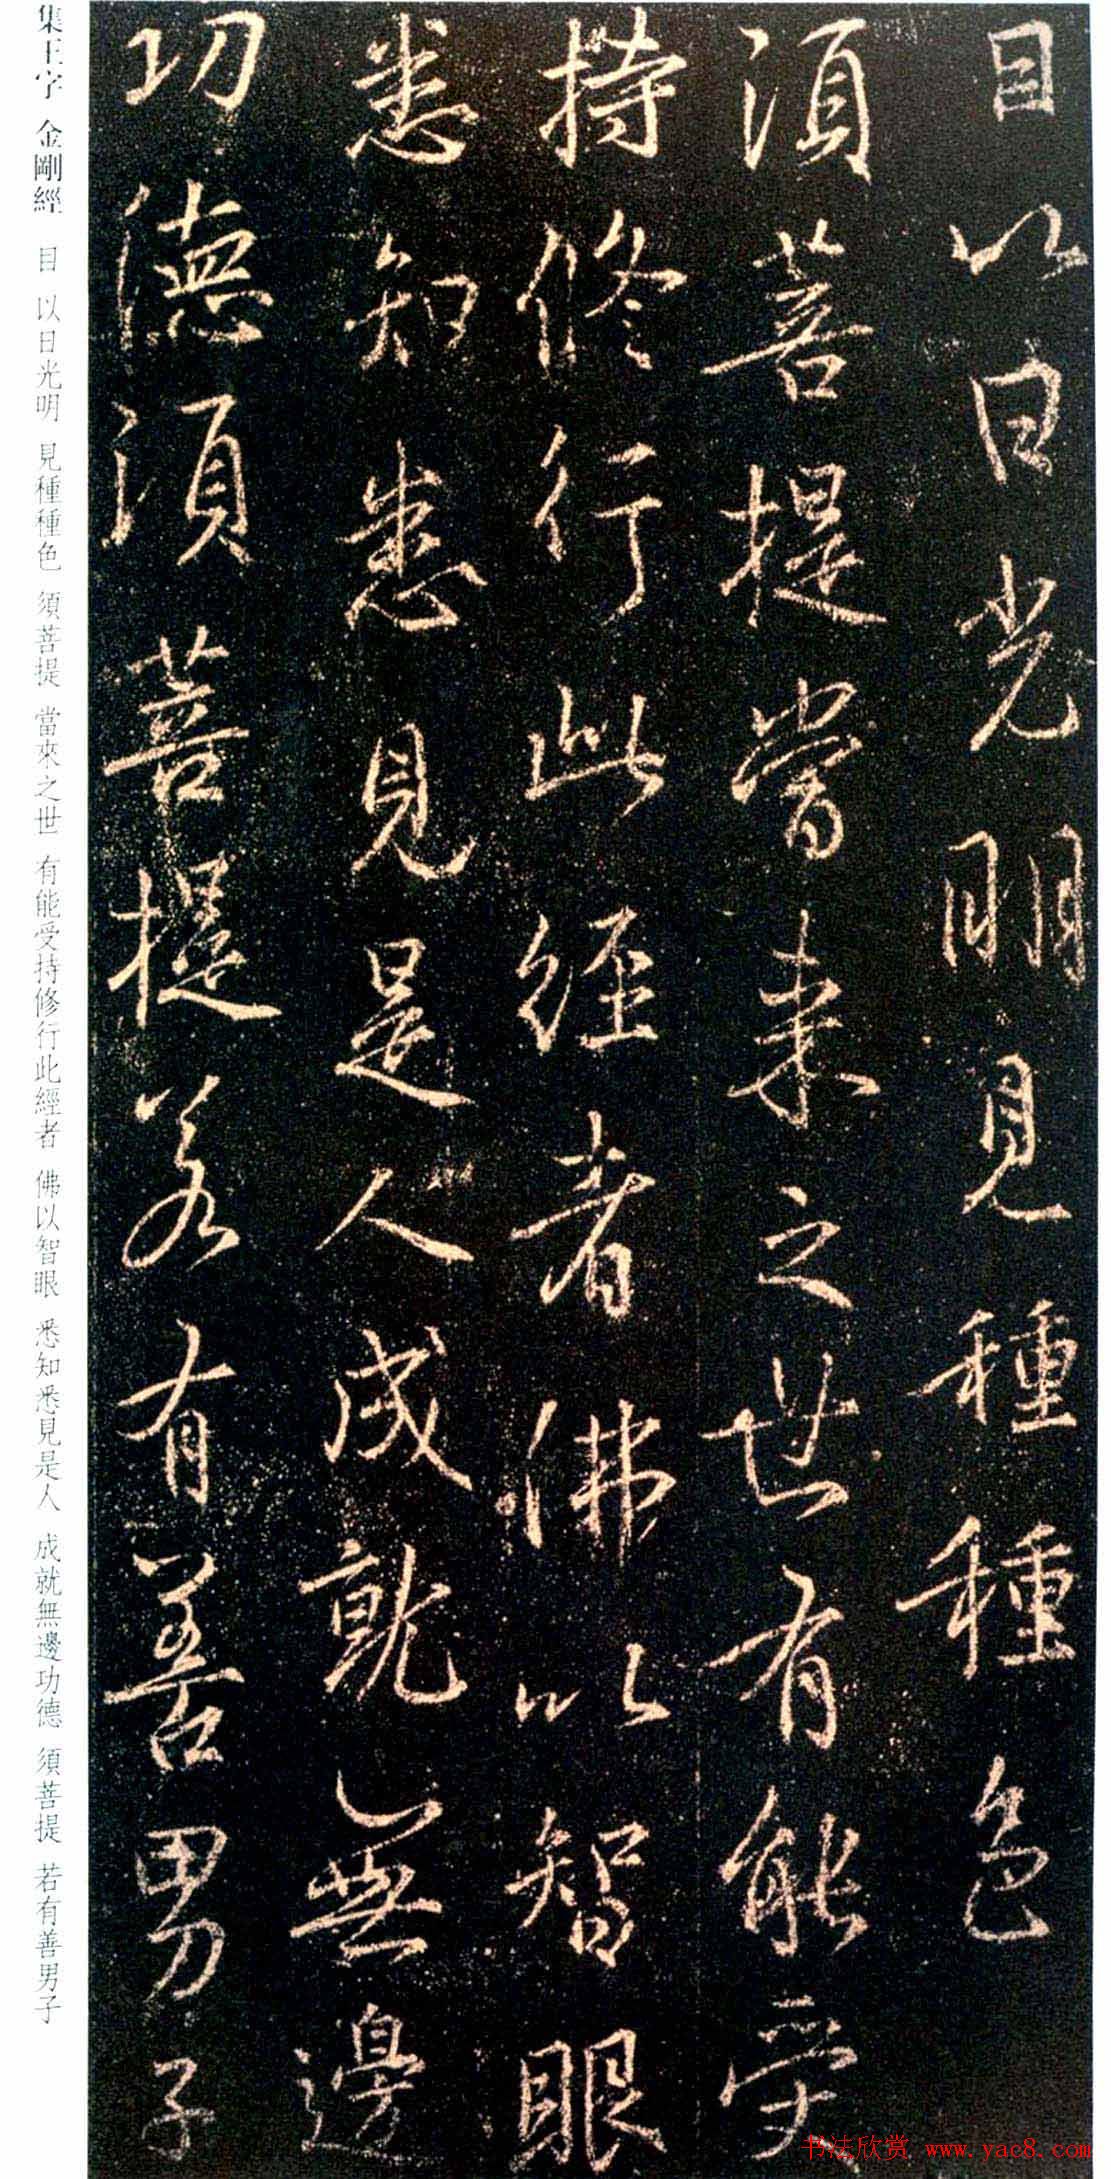 目以日光明見種種色
須菩提當来之世有能受
持修行此経者佛以智眼
悉知悉見是人成就無邊
功德須菩提若有善男子
集王字 金剛經 目 以日光明 見種種色 須菩提 當來之世 有能受持修行此經者 佛以智眼 悉知悉見是人 成就無邊功德 須菩提 若有善男子
书法欣赏 www.yac8.com